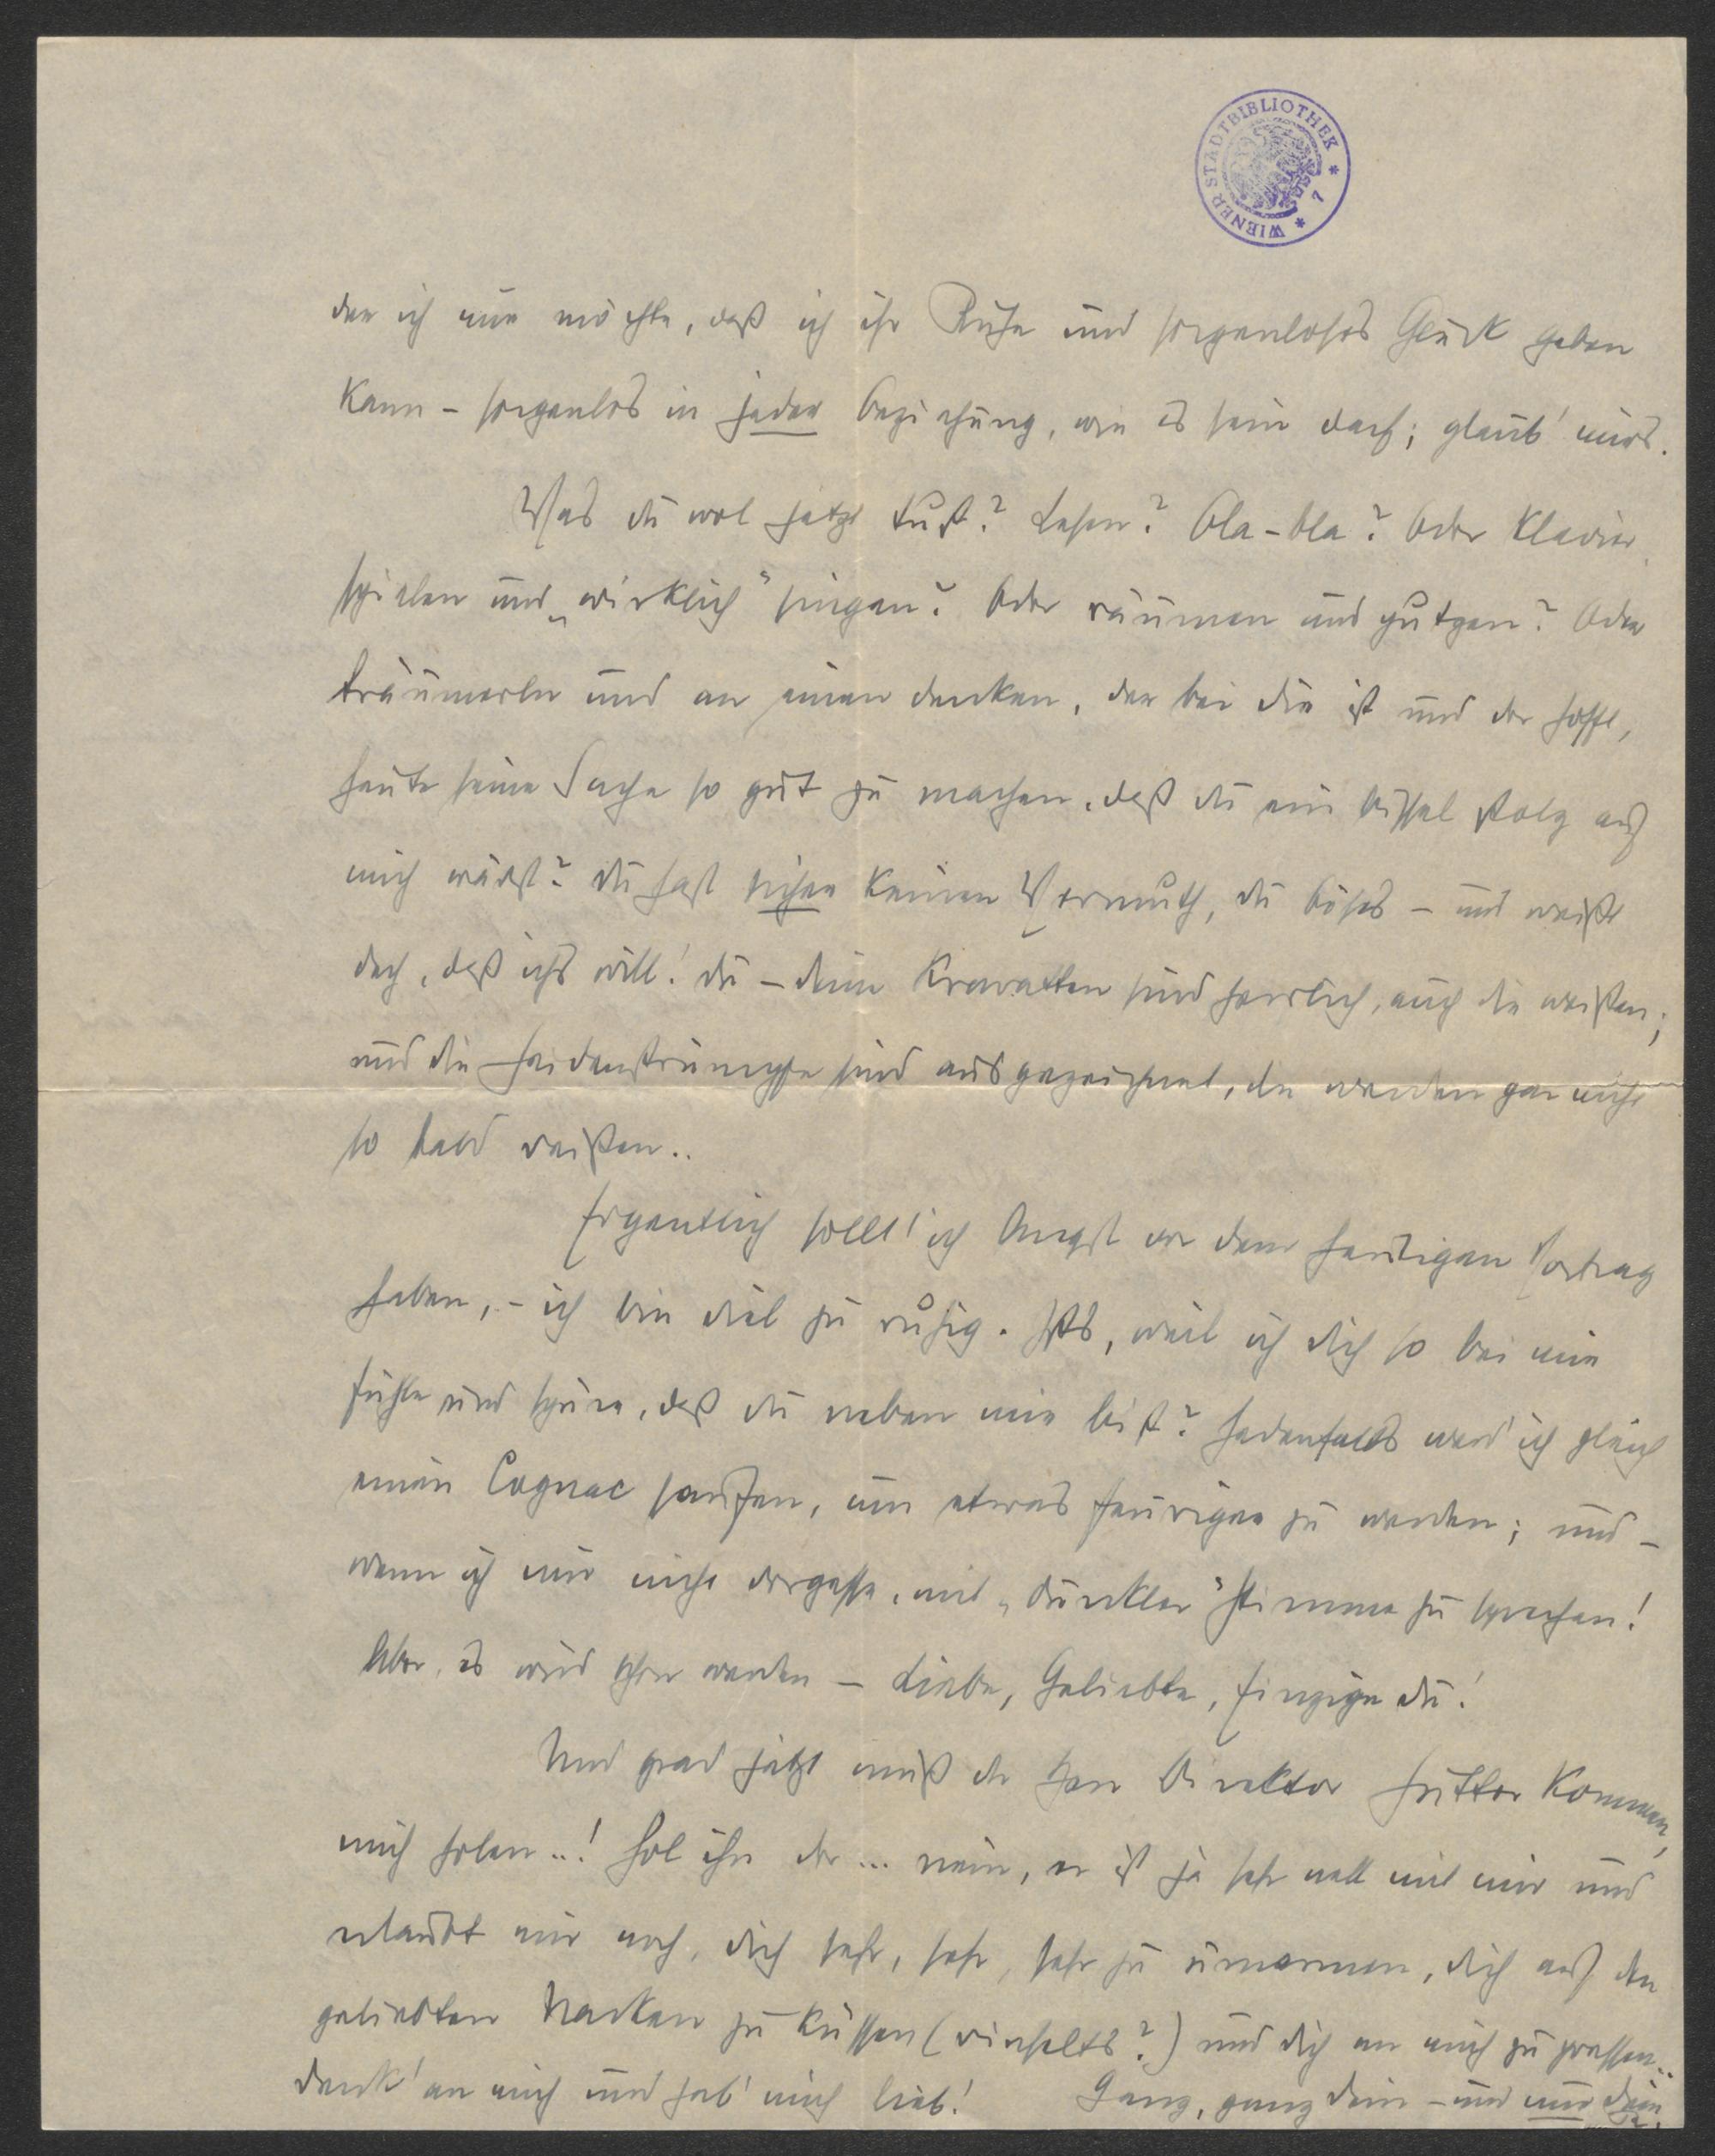 WIENER STADTBIBLIOTHEK * 7 *
der ich nur möchte, daß ich ihr Ruhe und sorgenloses Glück geben
kann – sorgenlos in jeder Beziehung, wie es sein darf; glaub' mirs.
Was du wol jetzt tust? Lesen? Bla-bla? Oder Klavier
spielen und „wirklich“ singen? Oder räumen und putzen? Oder
träumerln und an einen denken, der bei dir ist und der hofft,
heute seine Sache so gut zu machen, daß du ein bissel stolz auf
mich wärst? Du hast sicher keinen Vermuth, du böses – und weißt
doch, daß ichs will! Du – deine Kravatten sind herrlich, auch die weißen;
und die Seidenstrümpfe sind ausgezeichnet, die werden gar nicht
so bald reißen..
Eigentlich sollt' ich Angst vor dem heutigen Vortrag
haben, – ich bin viel zu ruhig. Ists, weil ich dich so bei mir
fühle und spüre, daß du neben mir bist? Jedenfalls werd' ich gleich
einen Cognac saufen, um etwas feuriger zu werden; und –
wenn ich nur nicht vergesse, mit „dunkler“ Stimme zu sprechen!
Aber, es wird schon werden – Liebe, Geliebte, Einzige du!
Und grad jetzt muß der Herr Direktor Hutter kommen,
mich holen..! Hol ihn der ... nein, er ist ja sehr nett mit mir und
erlaubt mir noch, dich sehr, sehr, sehr zu umarmen, dich auf den
geliebten Nacken zu küssen ( ) und dich an mich zu pressen..
denk' an mich und hab' mich lieb! Ganz, ganz dein – und nur dein